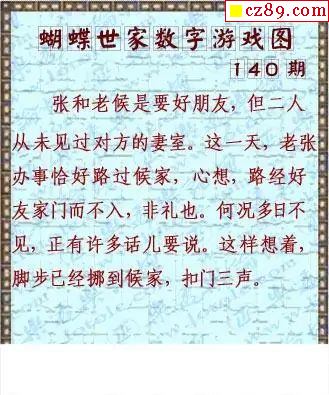 cz89.com
蝴蝶世家数字游戏图
140期
张和老候是要好朋友，但二人
从未见过对方的妻室。这一天，老张
办事恰好路过候家，心想，路经好
友家门而不入，非礼也。何况多日不
见，正有许多话儿要说。这样想着，
脚步已经挪到候家，扣门三声。